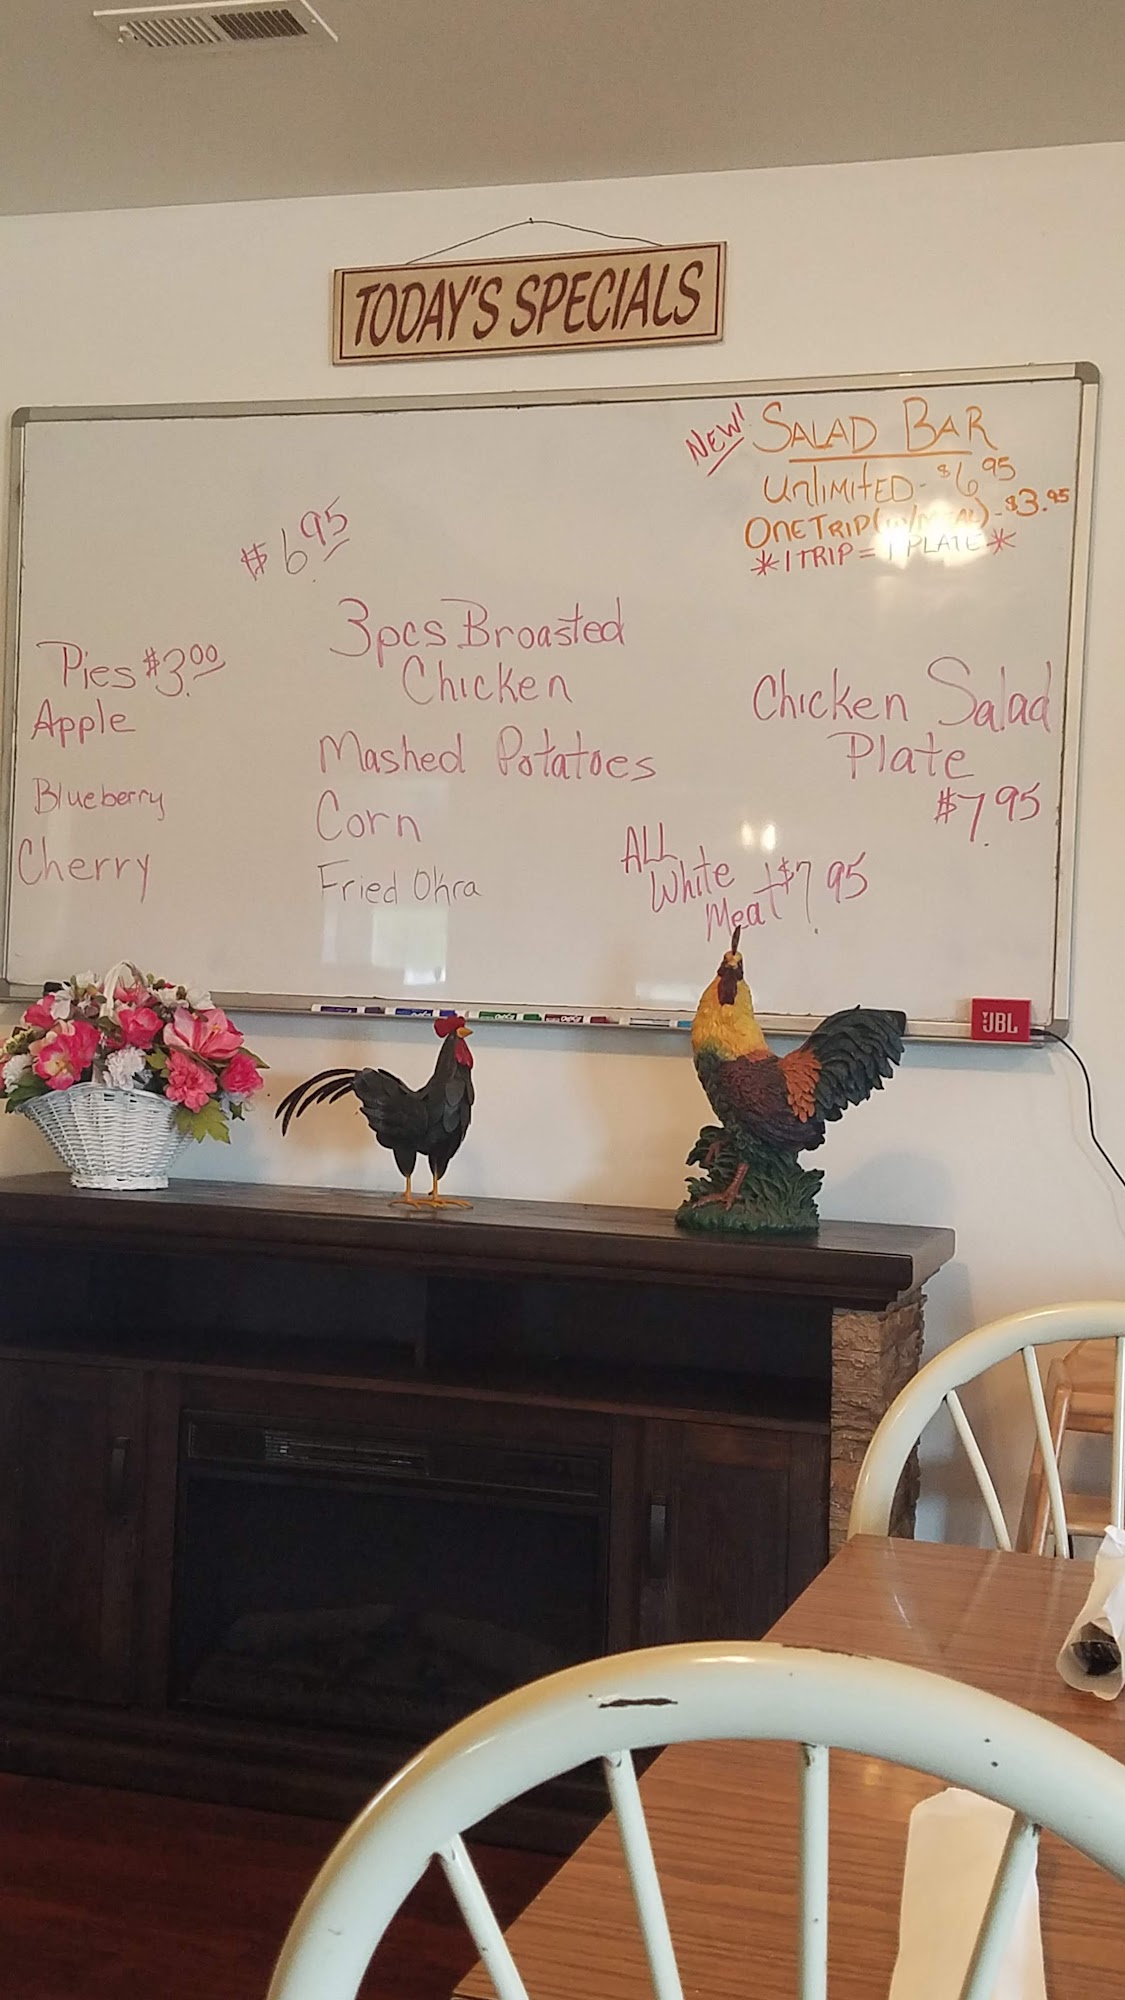 TODAY'S SPECIALS
NEW! SALAD BAR
UnLIMITED - $6.95
ONE TRIP (W/MEAL) - $3.95
*1 TRIP = 1 PLATE*
$6.95
3pcs Broasted
Chicken
Mashed Potatoes
Corn
Fried Okra
Pies $3.00
Apple
Blueberry
Cherry
Chicken Salad
Plate
$7.95
ALL
White
Meat $7.95
JBL